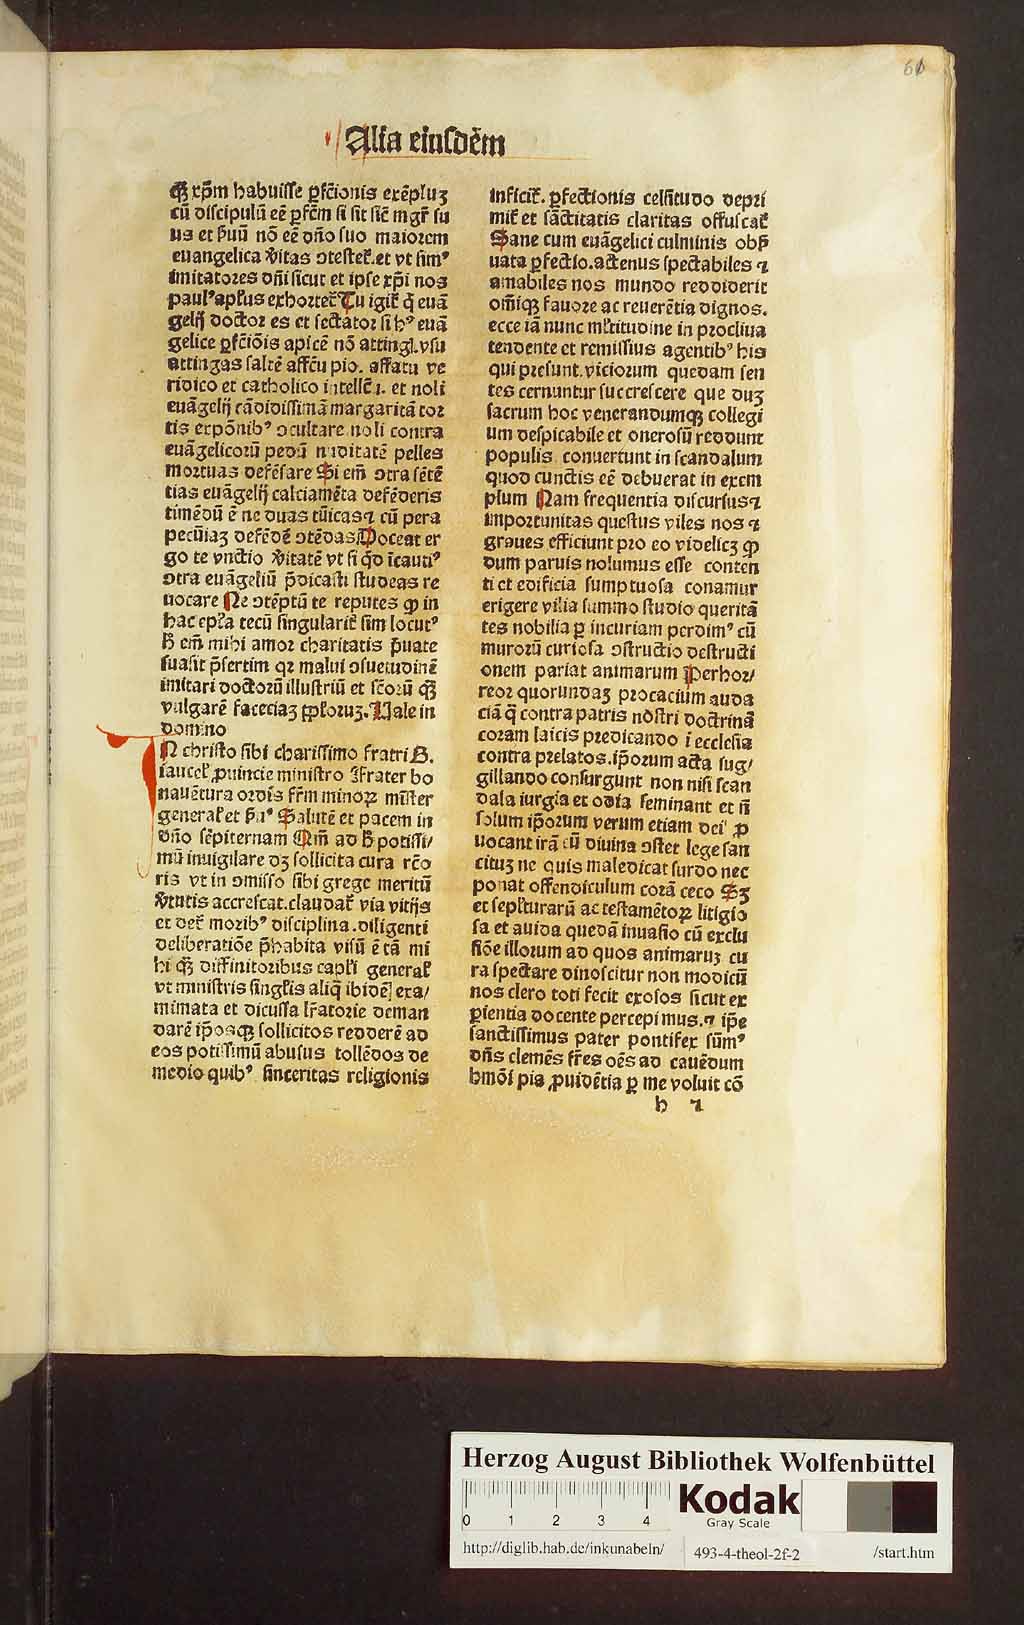 61
Alia eiusdēm
Qꝫ xp̄m habuisse ꝑfc̄ionis exēpluꝫ
cū discipulū eē ꝑfc̄m si sit sic̄ mgr̄ su
us et ẜuū nō eē dn̄o suo maiorem
euangelica v̄itas ꝯtestet̄.et vt simꝰ
imitatores dn̄i sicut et ipse xp̄i nos
paulꝰ apl̄us exhortet̄ Tu igit̄ q̄ euā
gelij doctor es et sectator si hꝰ euā
gelice ꝑfc̄iōis apicē nō attingi.vsu
attingas saltē affc̄u pio. affatu ve
ridico et catholico intellc̄ı. et noli
euāgelij cādidissimā margaritā tor
tis expōnibꝰ ꝯcultare.noli contra
euāgelicorū pedū nuditatē pelles
mortuas defēsare Si em̄ ꝯtra sētē
tias euāgelij calciamēta defēderis
timēdū ē ne duas tūicas ⁊ cū pera
pecūiaꝫ defēdē ꝯtēdas Doceat er
go te vnctio v̄itatē vt si qd̄ īcautiꝰ
ꝯtra euāgeliū p̄dicasti studeas re
uocare Ne ꝯtēptū te reputes ꝙ in
hac epl̄a tecū singularit̄ sim locutꝰ
ẜ em̄ mihi amor charitatis p̄uate
suasit p̄sertim qꝛ malui ꝯsuetudinē
imitari doctorū illustriū et sc̄orū qꝫ
vulgarē faceciaꝫ ꝓl̄oruꝫ. Vale in
domino
IN christo sibi charissimo fratri B.
iaucel̄ ꝓuincie ministro Frater bo
nauētura ordīs fr̄m minoꝝ mīster
general̄ et ẜuꝰ Salutē et pacem in
dn̄o sēpiternam Qm̄ ad ẜ potissi/
mū inuigilare dꝫ sollicita cura rc̄o
ris vt in ꝯmisso sibi grege meritū
v̄tutis accrescat.claudat̄ via vitijs
et det̄ moribꝰ disciplina.diligenti
deliberatiōe p̄habita visū ē tā mi
hi qꝫ diffinitoribus capl̄i general̄
vt ministris singl̄is aliq̄ ibidē] exa/
mimata et dicussa lr̄atorie deman
darē ip̄osqꝫ sollicitos redderē ad
eos potissimū abusus tollēdos de
medio quibꝰ sinceritas religionis
inficit̄. ꝑfectionis celsitudo depri
mit̄ et sāctitatis claritas offuscat̄
Sane cum euāgelici culminis obẜ
uata ꝑfectio.actenus spectabiles ⁊
amabiles nos mundo reddiderit
om̄iqꝫ fauore ac reuerētia dignos.
ecce iā nunc ml̄titudine in procliua
tendente et remissius agentibꝰ his
qui presunt.viciorum quedam sen
tes cernuntur succrescere que duꝫ
sacrum hoc venerandumqꝫ collegi
um despicabile et onerosū reddunt
populis conuertunt in scandalum
quod cunctis eē debuerat in exem
plum Nam frequentia discursus ⁊
importunitas questus viles nos ⁊
graues efficiunt pro eo videlicꝫ ꝙ
dum paruis nolumus esse conten
ti et edificia sumptuosa conamur
erigere vilia summo studio queritā
tes nobilia ꝑ incuriam perdimꝰ cū
murorū curiosa ꝯstructio destructi
onem pariat animarum Perhor/
reor quorundaꝫ procacium auda
ciā q̄ contra patris nōstri doctrinā
coram laicis predicando ī ecclesia
contra prelatos.ip̄orum acta sug/
gillando consurgunt non nisi scan
dala iurgia et odia seminant et n̄
solum ip̄orum verum etiam dei ꝓ
uocant irā cū diuina ꝯstet lege san
cituꝫ ne quis maledicat surdo nec
ponat offendiculum corā ceco Sꝫ
et sepl̄turarū ac testamētoꝝ litigio
sa et auida quedā inuasio cū exclu
siōe illorum ad quos animaruꝫ cu
ra spectare dinoscitur non modicū
nos clero toti fecit exosos sicut ex
ꝑientia docente percepimus.⁊ ip̄e
sanctissimus pater pontifex sūmꝰ
dn̄s clemēs fr̄es oēs ad cauēdum
hmōi pia ꝓuidētia ꝑ me voluit cō
h ⁊
Herzog August Bibliothek Wolfenbüttel
0 1 2 3 4
Kodak
Gray Scale
http://diglib.hab.de/inkunabeln/ 493-4-theol-2f-2 /start.htm